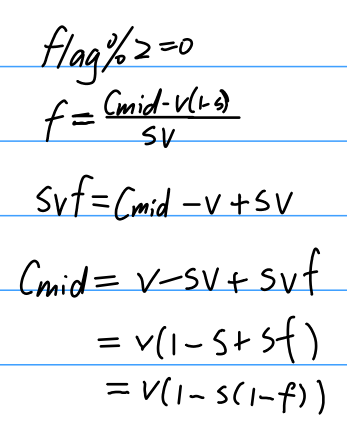 flag%2=0
f = (Cmid-v(1-s))/sv
svf = Cmid - v + sv
Cmid = v-sv + svf
= v(1-s+sf)
= v(1-s(1-f))